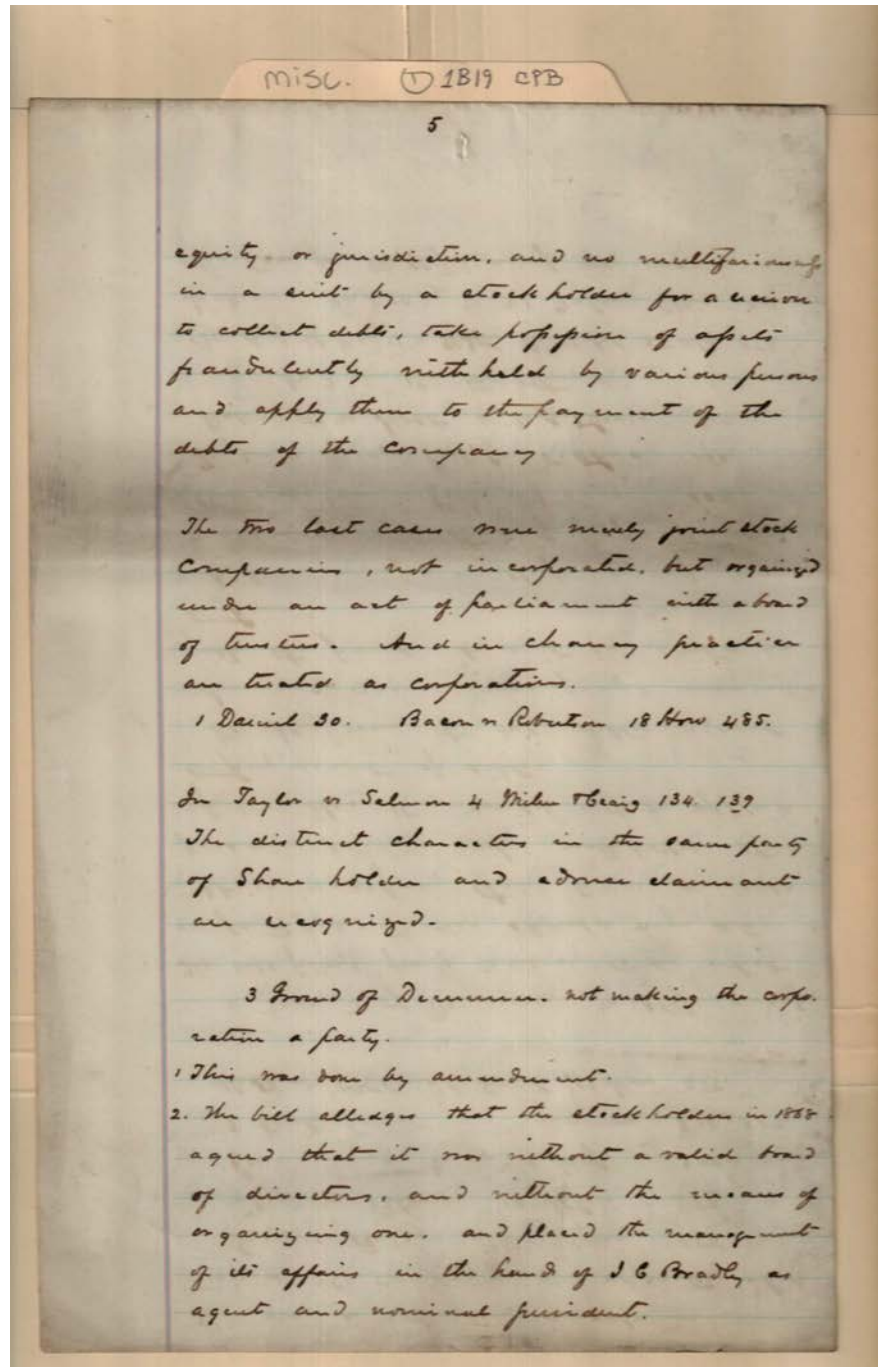 misc. ① 1B19 CPB
5
equity or jurisdiction, and no multifariousness
in a suit by a stockholder for a
to collect debts, take possession of assets
fraudulently withheld by various persons
and apply them to the payment of the
debts of the Company
The two last cases were merely joint stock
Companies, not incorporated, but organized
under an act of parliament with a board
of trustees. And in chancery practice
are treated as corporations.
1 Daniel 30. Bacon vs Robertson 18 How 485.
In Taylor vs Salmon 4 Milne & Craig 134. 139
The distinct characters in the same party
of Share holder and adverse claimant
are recognized.
3 Ground of Demurrer. not making the corpo.
ration a party.
1 This was done by amendment.
2. The bill alledges that the stockholders in 1868
agreed that it was without a valid board
of directors, and without the means of
organizing one. and placed the management
of its affairs in the hands of J C Bradley as
agent and nominal president.